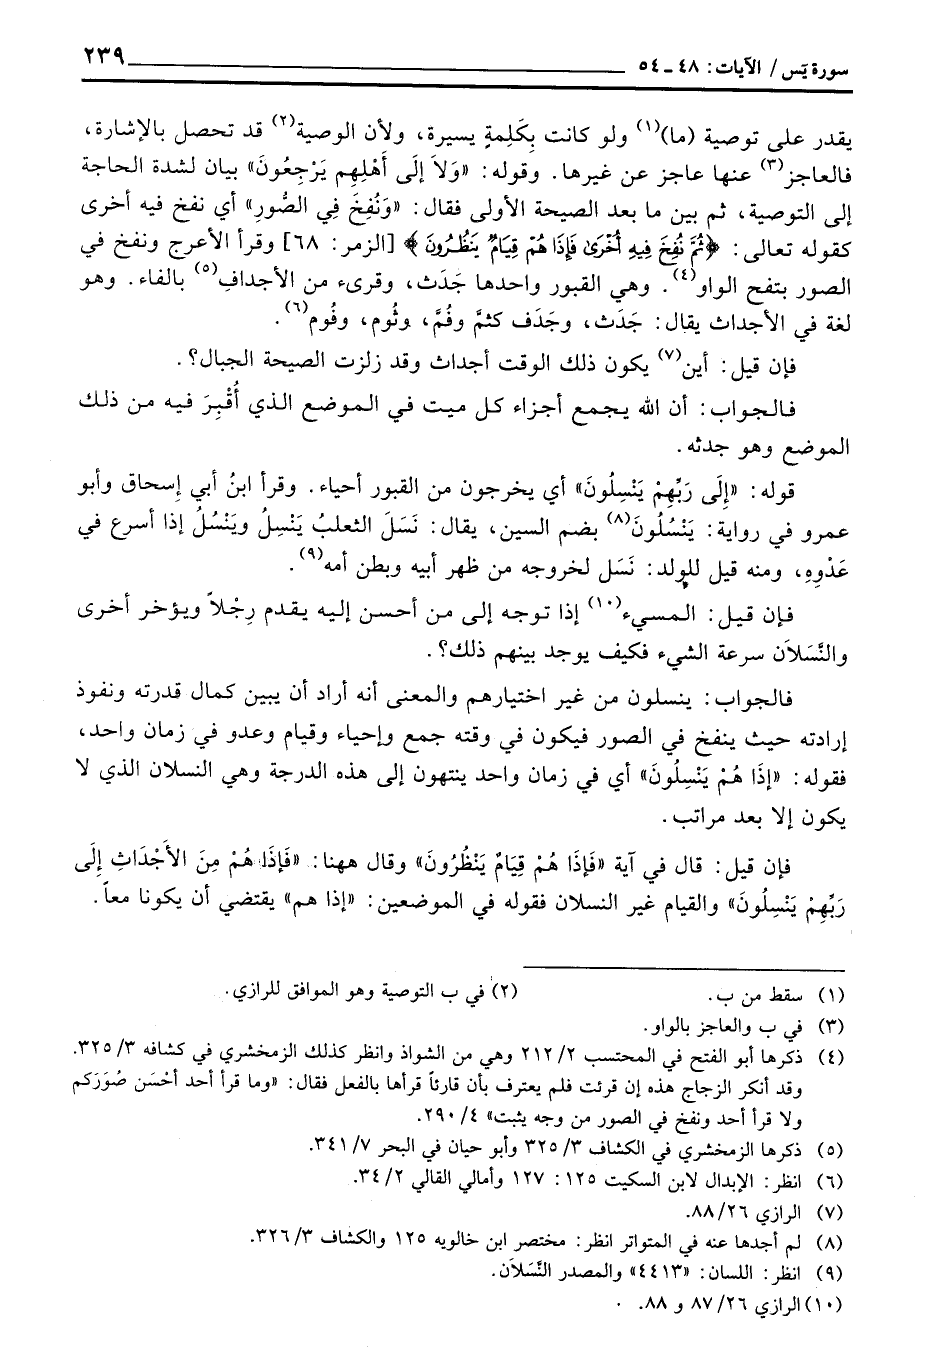 سورة يَس / الآيات: ٤٨ ـ ٥٤ ٢٣٩
يقدر على توصية (ما)(١) ولو كانت بِكَلِمةٍ يسيرة، ولأن الوصية(٢) قد تحصل بالإشارة،
فالعاجز(٣) عنها عاجز عن غيرها. وقوله: «وَلاَ إلَى أَهْلِهِم يَرْجِعُونَ» بيان لشدة الحاجة
إلى التوصية، ثم بين ما بعد الصيحة الأولى فقال: «وَنُفِخَ فِي الصُّورِ» أي نفخ فيه أخرى
كقوله تعالى: ﴿ثُمَّ نُفِخَ فِيهِ أُخْرَىٰ فَإِذَا هُمْ قِيَامٌ يَنظُرُونَ﴾ [الزمر: ٦٨] وقرأ الأعرج ونفخ في
الصور بتفح الواو(٤). وهي القبور واحدها جَدَث، وقرىء من الأجداف(٥) بالفاء. وهو
لغة في الأجداث يقال: جَدَث، وجَدَف كثمَّ وفُمَّ، وثُوم، وفُوم(٦).
فإن قيل: أين(٧) يكون ذلك الوقت أجداث وقد زلزت الصيحة الجبال؟.
فالجواب: أن الله يجمع أجزاء كل ميت في الموضع الذي أُقْبِرَ فيه من ذلك
الموضع وهو جدثه.
قوله: «إلَى رَبِّهِمْ يَنْسِلُونَ» أي يخرجون من القبور أحياء. وقرأ ابنُ أبي إسحاق وأبو
عمرو في رواية: يَنْسُلُونَ(٨) بضم السين، يقال: نَسَلَ الثعلبُ يَنْسِلُ ويَنْسُلُ إذا أسرع في
عَدْوِهِ، ومنه قيل للولد: نَسَل لخروجه من ظهر أبيه وبطن أمه(٩).
فإن قيل: المسيء(١٠) إذا توجه إلى من أحسن إليه يقدم رِجْلاً ويؤخر أخرى
والنَّسَلاَن سرعة الشيء فكيف يوجد بينهم ذلك؟.
فالجواب: ينسلون من غير اختيارهم والمعنى أنه أراد أن يبين كمال قدرته ونفوذ
إرادته حيث ينفخ في الصور فيكون في وقته جمع وإحياء وقيام وعدو في زمان واحد،
فقوله: «إذَا هُمْ يَنْسِلُونَ» أي في زمان واحد ينتهون إلى هذه الدرجة وهي النسلان الذي لا
يكون إلا بعد مراتب.
فإن قيل: قال في آية «فَإِذَا هُمْ قِيَامٌ يَنْظُرُونَ» وقال ههنا: «فَإِذَا هُمْ مِنَ الأَجْدَاثِ إلَى
رَبِّهِمْ يَنْسِلُونَ» والقيام غير النسلان فقوله في الموضعين: «إذا هم» يقتضي أن يكونا معاً.
(١) سقط من ب. (٢) في ب التوصية وهو الموافق للرازي.
(٣) في ب والعاجز بالواو.
(٤) ذكرها أبو الفتح في المحتسب ٢/ ٢١٢ وهي من الشواذ وانظر كذلك الزمخشري في كشافه ٣/ ٣٢٥.
وقد أنكر الزجاج هذه إن قرئت فلم يعترف بأن قارئاً قرأها بالفعل فقال: «وما قرأ أحد أحْسَن صُوَرَكم
ولا قرأ أحد ونفخ في الصور من وجه يثبت» ٤/ ٢٩٠.
(٥) ذكرها الزمخشري في الكشاف ٣/ ٣٢٥ وأبو حيان في البحر ٧/ ٣٤١.
(٦) انظر: الإبدال لابن السكيت ١٢٥: ١٢٧ وأمالي القالي ٢/ ٣٤.
(٧) الرازي ٢٦/ ٨٨.
(٨) لم أجدها عنه في المتواتر انظر: مختصر ابن خالويه ١٢٥ والكشاف ٣/ ٣٢٦.
(٩) انظر: اللسان: «٤٤١٣» والمصدر النَّسَلاَن.
(١٠) الرازي ٢٦/ ٨٧ و ٨٨.